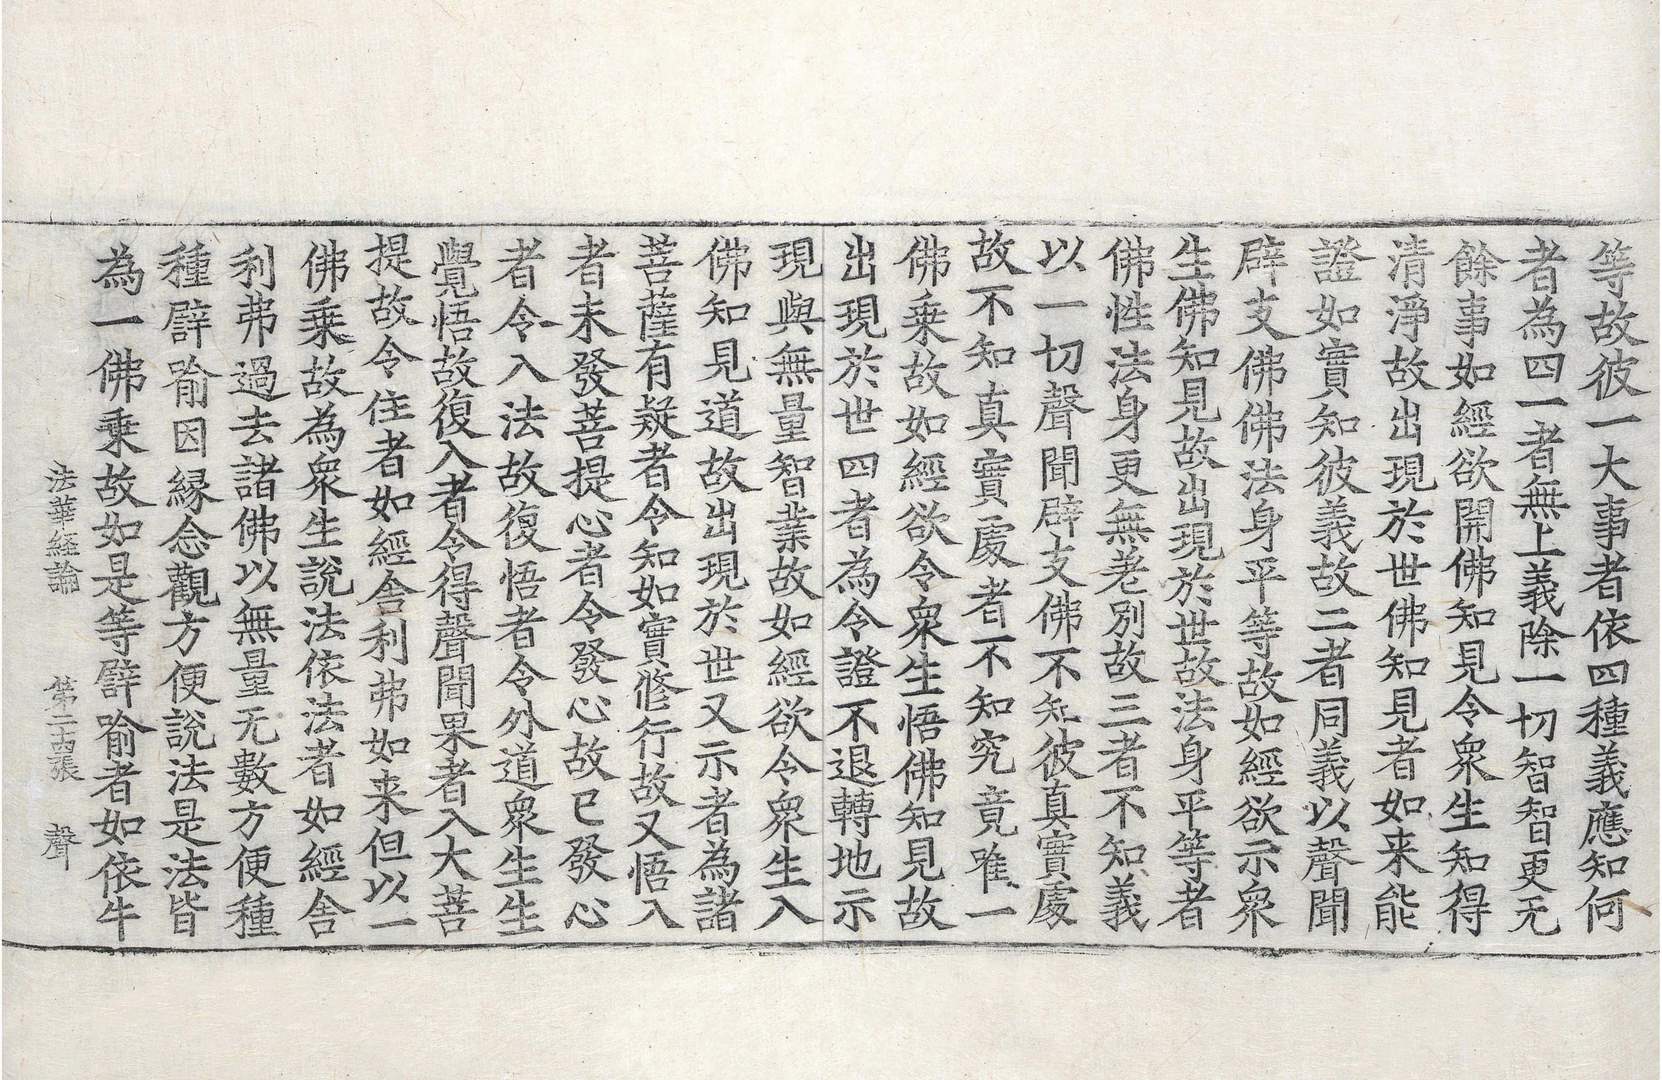 等故彼一大事者依四種義應知何
者為四一者無上義除一切智智更无
餘事如經欲開佛知見令衆生知得
清淨故出現於世佛知見者如来能
證如實知彼義故二者同義以聲聞
辟支佛佛法身平等故如經欲示衆
生佛知見故出現於世故法身平等者
佛性法身更無差別故三者不知義
以一切聲聞辟支佛不知彼真實處
故不知真實處者不知究竟唯一
佛乗故如經欲令衆生悟佛知見故
出現於世四者為令證不退轉地示
現與無量智業故如經欲令衆生入
佛知見道故出現於世又示者為諸
菩薩有疑者令知如實修行故又悟入
者未發菩提心者令發心故已發心
者令入法故復悟者令外道衆生生
覺悟故復入者令得聲聞果者入大菩
提故令住者如經舎利弗如来但以一
佛乗故為衆生說法依法者如經舎
利弗過去諸佛以無量无數方便種
種譬喻因縁念觀方便說法是法皆
為一佛乗故如是等譬喻者如依牛
法華経論　第二十四張　聲